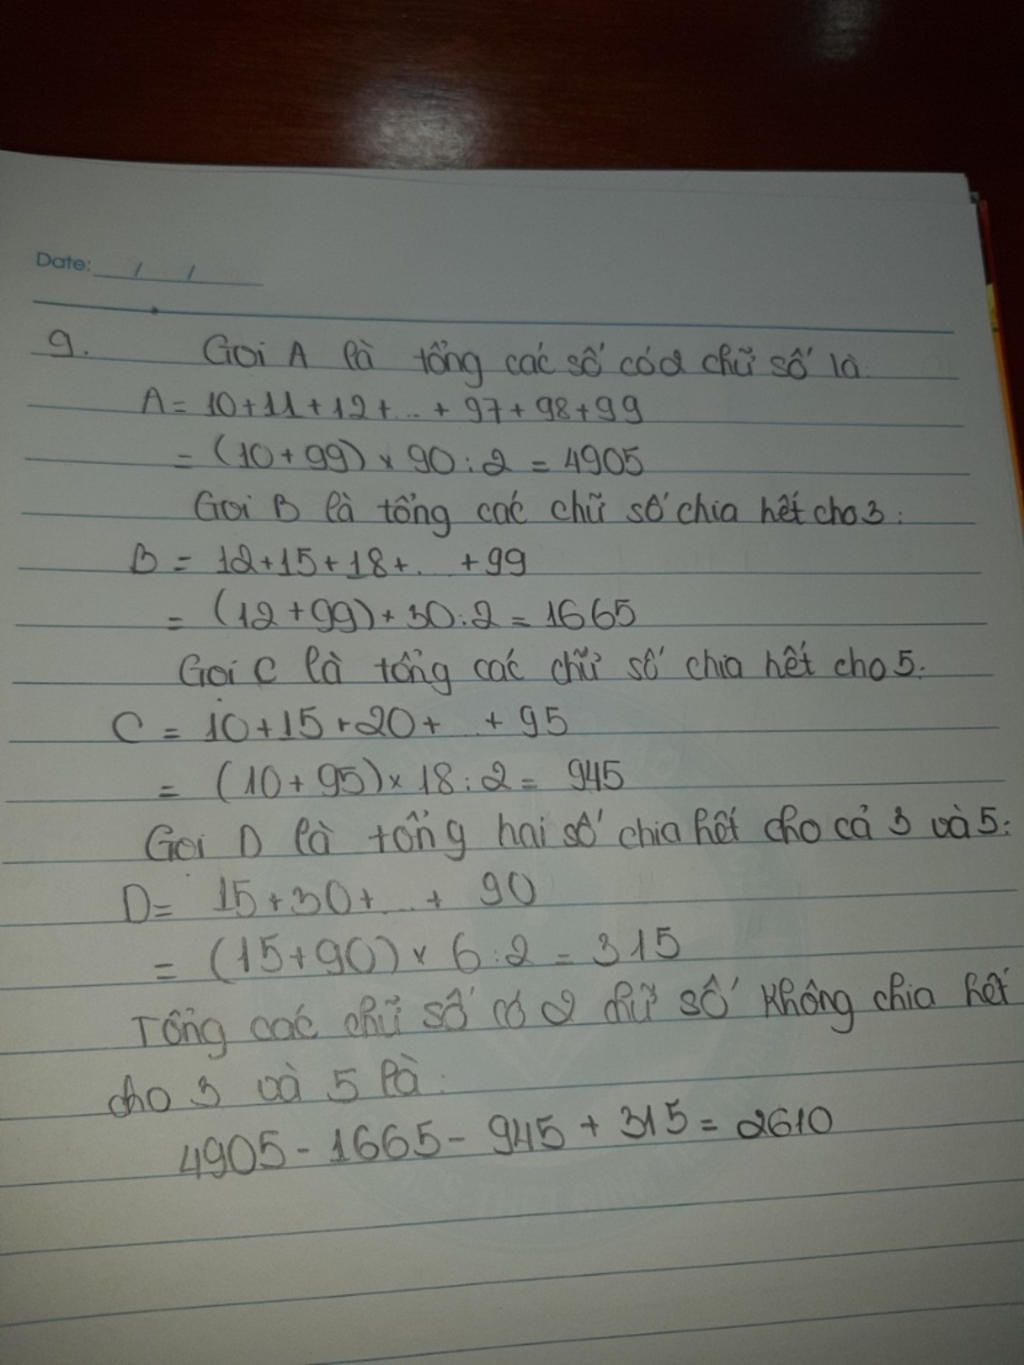 Date: / /
9. Gọi A là tổng các số có 2 chữ số là:
A = 10+11+12+...+97+98+99
= (10+99) x 90:2 = 4905
Gọi B là tổng các chữ số chia hết cho 3:
B = 12+15+18+...+99
= (12+99) x 30:2 = 1665
Gọi C là tổng các chữ số chia hết cho 5:
C = 10+15+20+...+95
= (10+95) x 18:2 = 945
Gọi D là tổng hai số chia hết cho cả 3 và 5:
D = 15+30+...+90
= (15+90) x 6:2 = 315
Tổng các chữ số có 2 chữ số không chia hết
cho 3 và 5 là:
4905 - 1665 - 945 + 315 = 2610